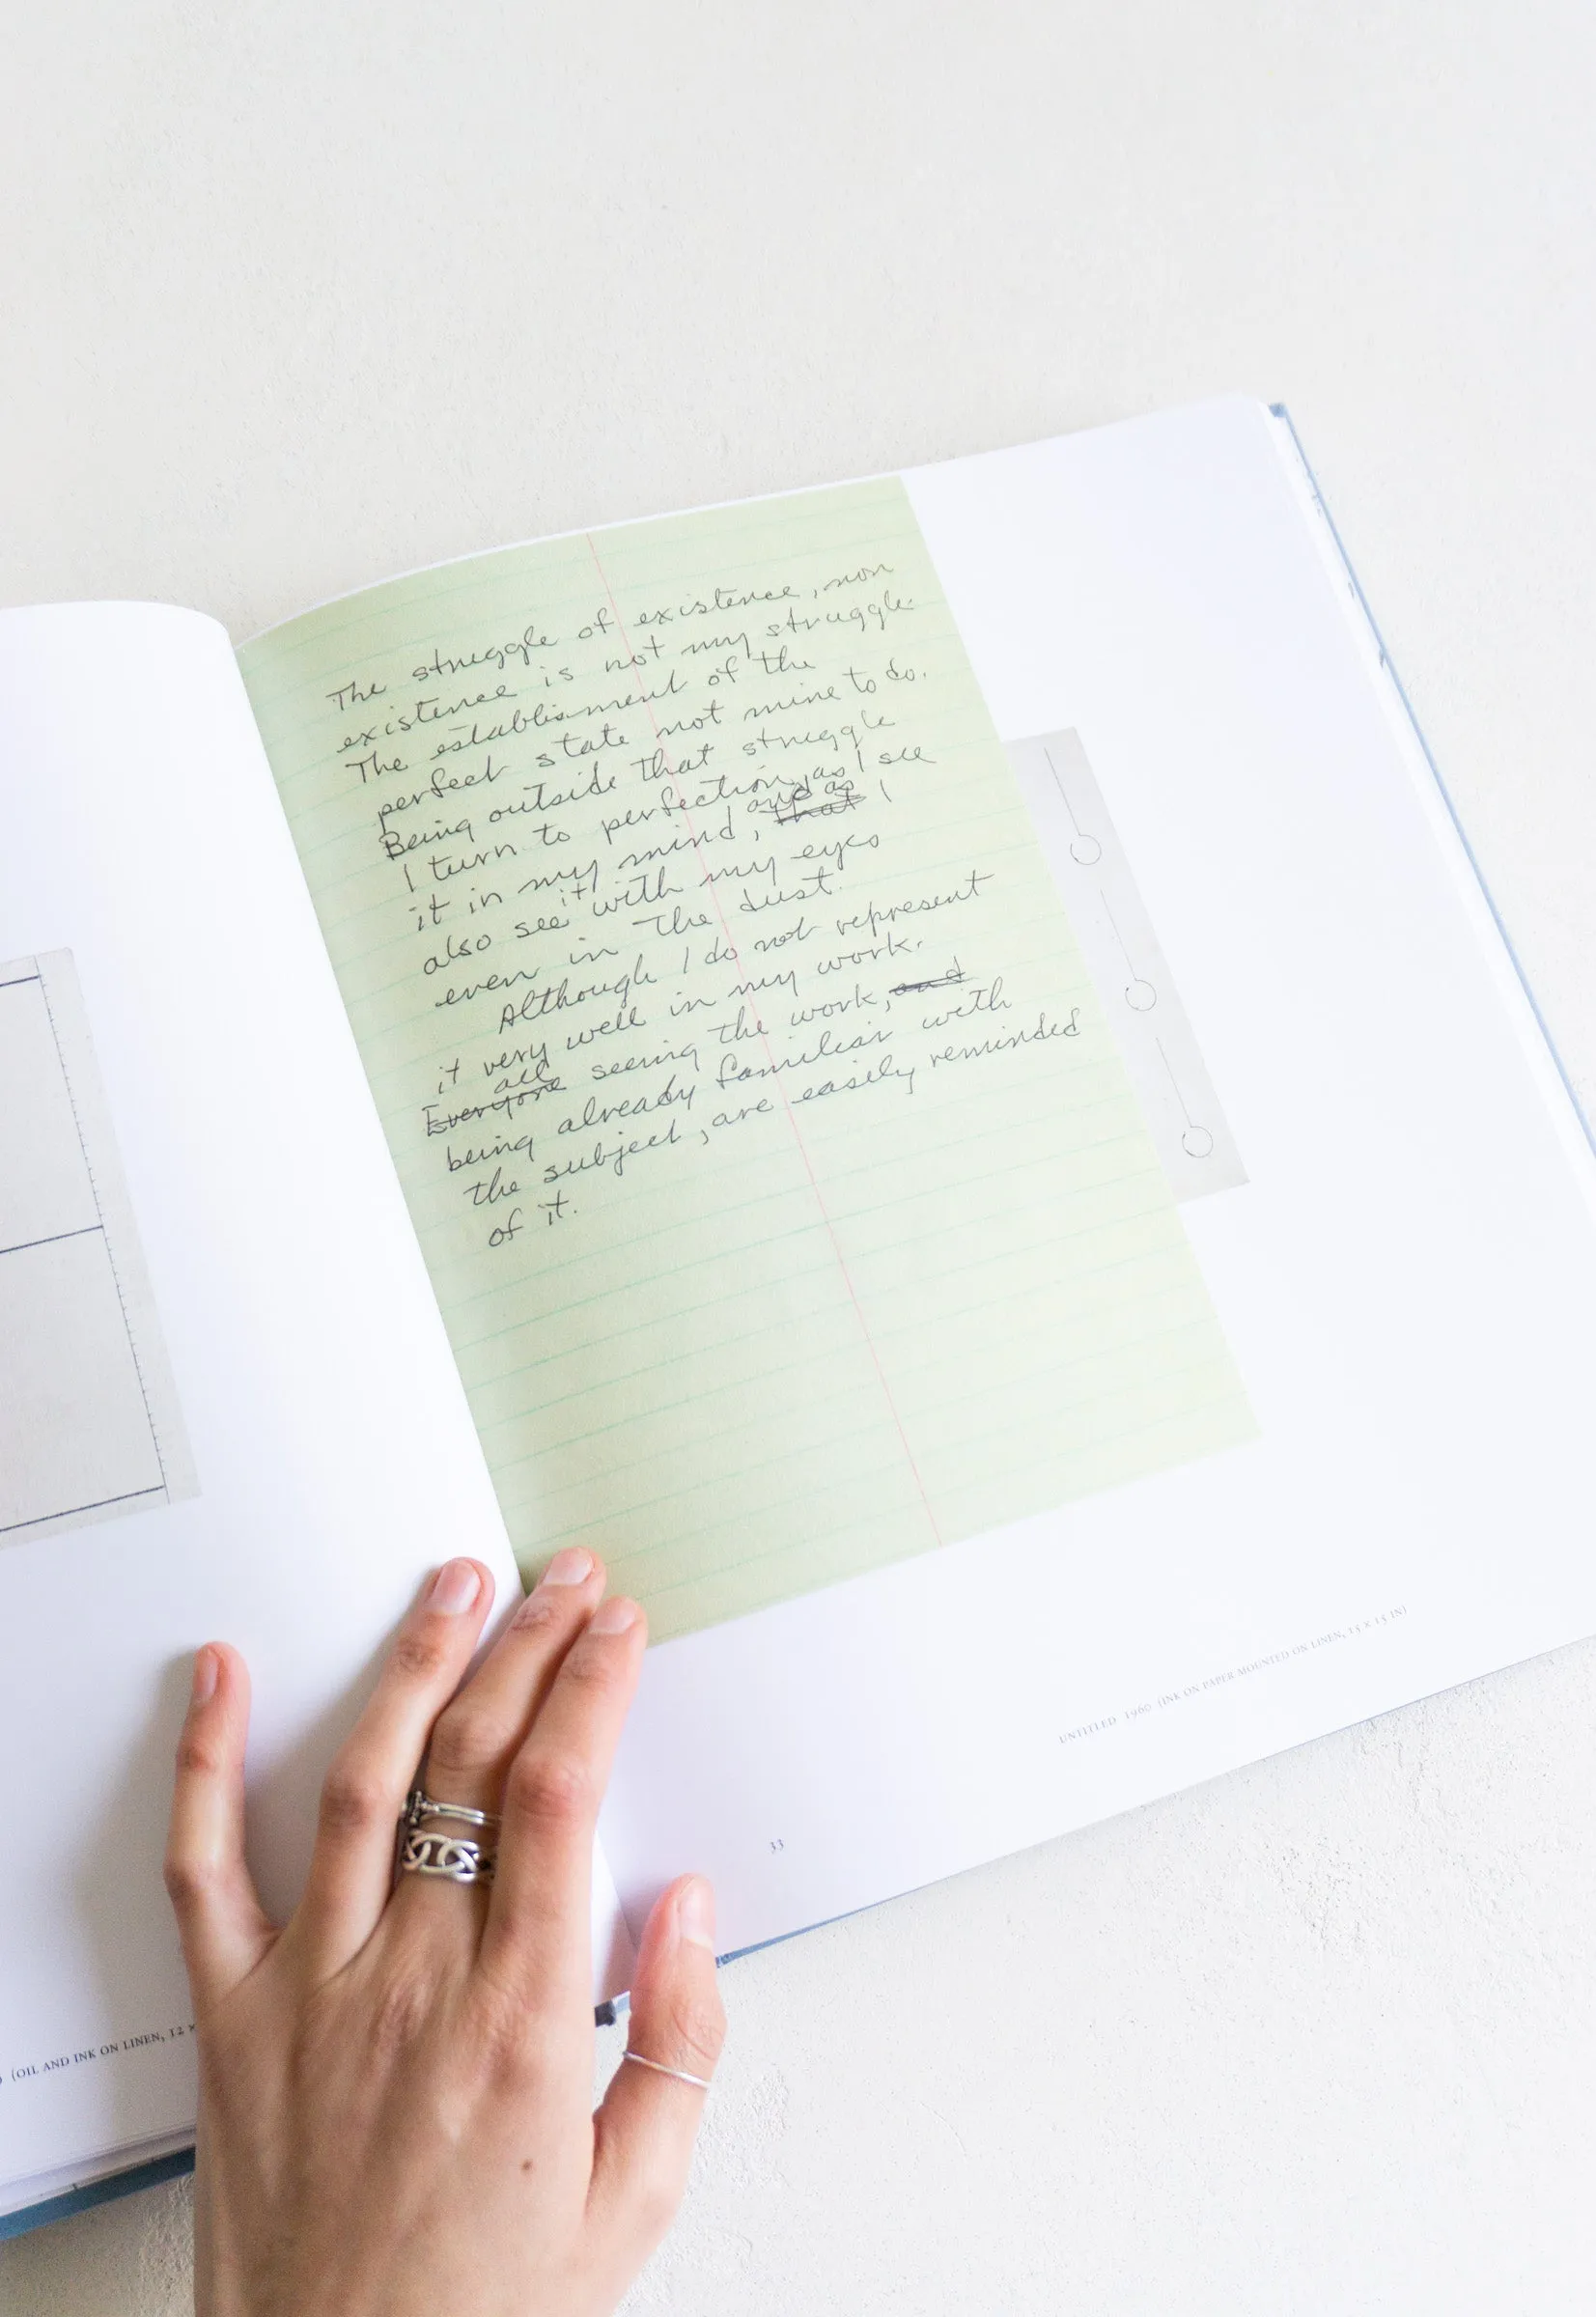 The struggle of existence, non
existence is not my struggle.
The establisment of the
perfect state not mine to do.
Being outside that struggle
I turn to perfection as I see
it in my mind, ~~that~~ and as I
also see it with my eyes
even in the dust.
Although I do not represent
it very well in my work.
~~Everyone~~ all seeing the work, ~~and~~
being already familiar with
the subject, are easily reminded
of it.
UNTITLED 1960 (INK ON PAPER MOUNTED ON LINEN, 15 × 15 IN)
33
(OIL AND INK ON LINEN, 12 ×